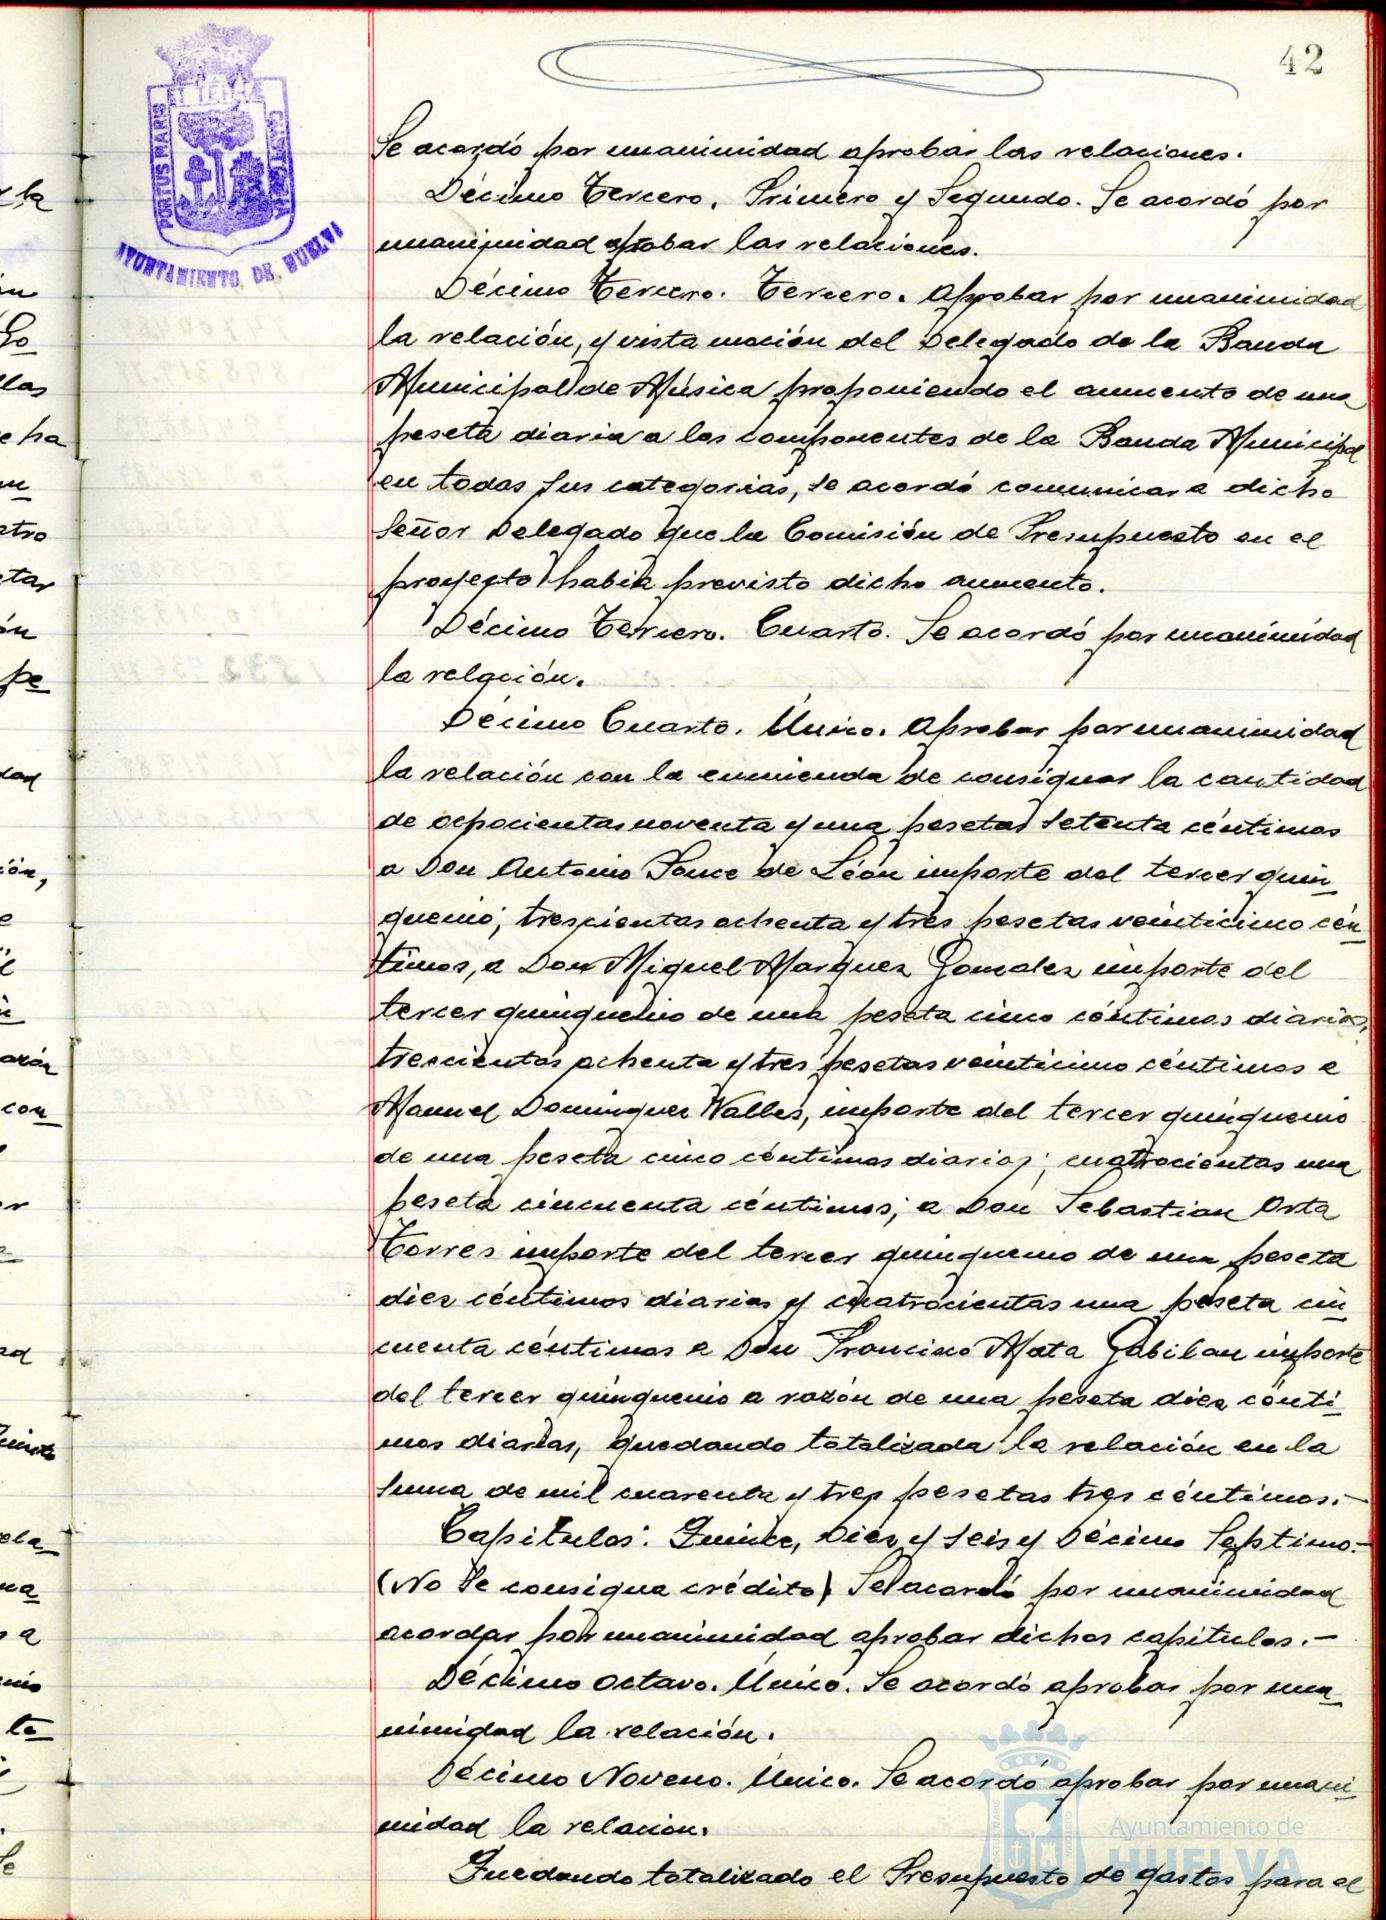 42
PORTUS MARIS ET TERRÆ CUSTODIA
AYUNTAMIENTO DE HUELVA
Se acordó por unanimidad aprobar las relaciones.
Décimo Tercero. Primero y Segundo. Se acordó por
unanimidad aprobar las relaciones.
Décimo Tercero. Tercero. Aprobar por unanimidad
la relación, y vista moción del Delegado de la Banda
Municipal de Música proponiendo el aumento de una
peseta diaria a los componentes de la Banda Municipal
en todas sus categorias, se acordó comunicar a dicho
Señor Delegado que la Comisión de Presupuesto en el
proyecto habia previsto dicho aumento.
Décimo Tercero. Cuarto. Se acordó por unanimidad
la relación.
Décimo Cuarto. Único. Aprobar por unanimidad
la relación con la enmienda de consignar la cantidad
de ochocientas noventa y una pesetas setenta céntimos
a Don Antonio Ponce de Léon importe del tercer quin
quenio; trescientas ochenta y tres pesetas veinticinco cén
timos, a Don Miguel Marquez Gonzalez importe del
tercer quinquenio de una peseta cinco céntimos diarios,
trescientas ochenta y tres pesetas veinticinco céntimos a
Manuel Dominguez Valles, importe del tercer quinquenio
de una peseta cinco céntimos diarios; cuatrocientas una
peseta cincuenta céntimos; a Don Sebastian Orta
Torres importe del tercer quinquenio de una peseta
diez céntimos diarios y cuatrocientas una peseta cin
cuenta céntimos a Don Francisco Mata Gabilan importe
del tercer quinquenio a razón de una peseta diez cénti
mos diarias, quedando totalizada la relación en la
suma de mil cuarenta y tres pesetas tres céntimos.-
Capitulos: Quince, Diez y seis y Décimo Septimo.-
(No se consigna crédito) Se acordó por unanimidad
acordar por unanimidad aprobar dichos capitulos.-
Décimo Octavo. Único. Se acordó aprobar por una
nimidad la relación.
Décimo Noveno. Único. Se acordó aprobar por unani
midad la relacion.
Quedando totalizado el Presupuesto de gastos para el
Ayuntamiento de
HUELVA